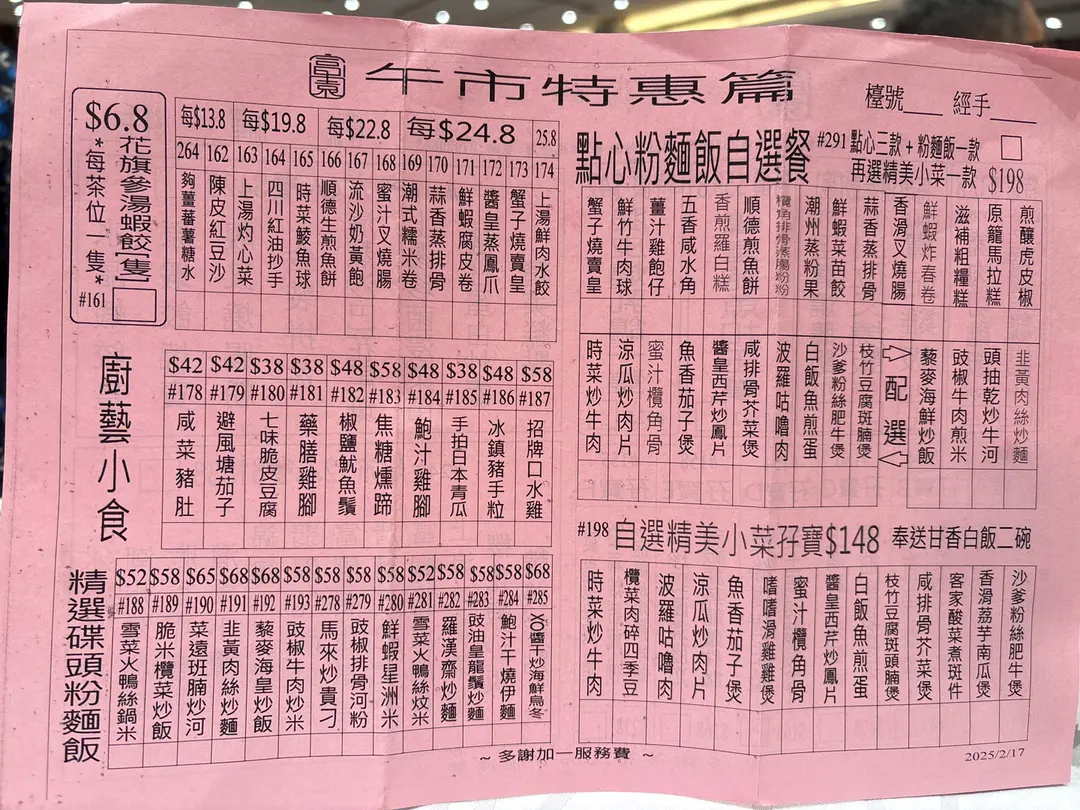 富東 午市特惠篇
檯號___ 經手___
$6.8
花旗參湯蝦餃[隻]
*每茶位一隻*
#161
每$13.8 每$19.8 每$22.8 每$24.8 25.8
264 162 163 164 165 166 167 168 169 170 171 172 173 174
夠薑蕃薯糖水
陳皮紅豆沙
上湯灼心菜
四川紅油抄手
時菜鯪魚球
順德生煎魚餅
流沙奶黃飽
蜜汁叉燒腸
潮式糯米卷
蒜香蒸排骨
鮮蝦腐皮卷
醬皇蒸鳳爪
蟹子燒賣皇
上湯鮮肉水餃
廚藝小食
$42 $42 $38 $38 $48 $58 $48 $38 $48 $58
#178 #179 #180 #181 #182 #183 #184 #185 #186 #187
咸菜豬肚
避風塘茄子
七味脆皮豆腐
藥膳雞腳
椒鹽魷魚鬚
焦糖燻蹄
鮑汁雞腳
手拍日本青瓜
冰鎮豬手粒
招牌口水雞
精選碟頭粉麵飯
$52 $58 $65 $68 $68 $58 $58 $58 $58 $52 $58 $58 $58 $68
#188 #189 #190 #191 #192 #193 #278 #279 #280 #281 #282 #283 #284 #285
雪菜火鴨絲鍋米
脆米欖菜炒飯
菜遠班腩炒河
韭黃肉絲炒麵
藜麥海皇炒飯
豉椒牛肉炒米
馬來炒貴刁
豉椒排骨河粉
鮮蝦星洲米
雪菜火鴨絲炆米
羅漢齋炒麵
豉油皇龍鬚炒麵
鮑汁干燒伊麵
XO醬干炒海鮮烏冬
點心粉麵飯自選餐
#291 點心三款+粉麵飯一款
再選精美小菜一款 $198
蟹子燒賣皇
鮮竹牛肉球
薑汁雞飽仔
五香咸水角
香煎羅白糕
順德煎魚餅
欖角排骨蒸腸粉
潮州蒸粉果
鮮蝦菜苗餃
蒜香蒸排骨
香滑叉燒腸
鮮蝦炸春卷
滋補粗糧糕
原籠馬拉糕
煎釀虎皮椒
時菜炒牛肉
涼瓜炒肉片
蜜汁欖角骨
魚香茄子煲
醬皇西芹炒鳳片
咸排骨芥菜煲
波羅咕嚕肉
白飯魚煎蛋
沙爹粉絲肥牛煲
枝竹豆腐斑腩煲
配選
藜麥海鮮炒飯
豉椒牛肉煎米
頭抽乾炒牛河
韭黃肉絲炒麵
#198 自選精美小菜孖寶$148 奉送甘香白飯二碗
時菜炒牛肉
欖菜肉碎四季豆
波羅咕嚕肉
涼瓜炒肉片
魚香茄子煲
嗜嗜滑雞雞煲
蜜汁欖角骨
醬皇西芹炒鳳片
白飯魚煎蛋
枝竹豆腐斑頭腩煲
咸排骨芥菜煲
客家酸菜煮斑件
香滑荔芋南瓜煲
沙爹粉絲肥牛煲
~多謝加一服務費~
2025/2/17